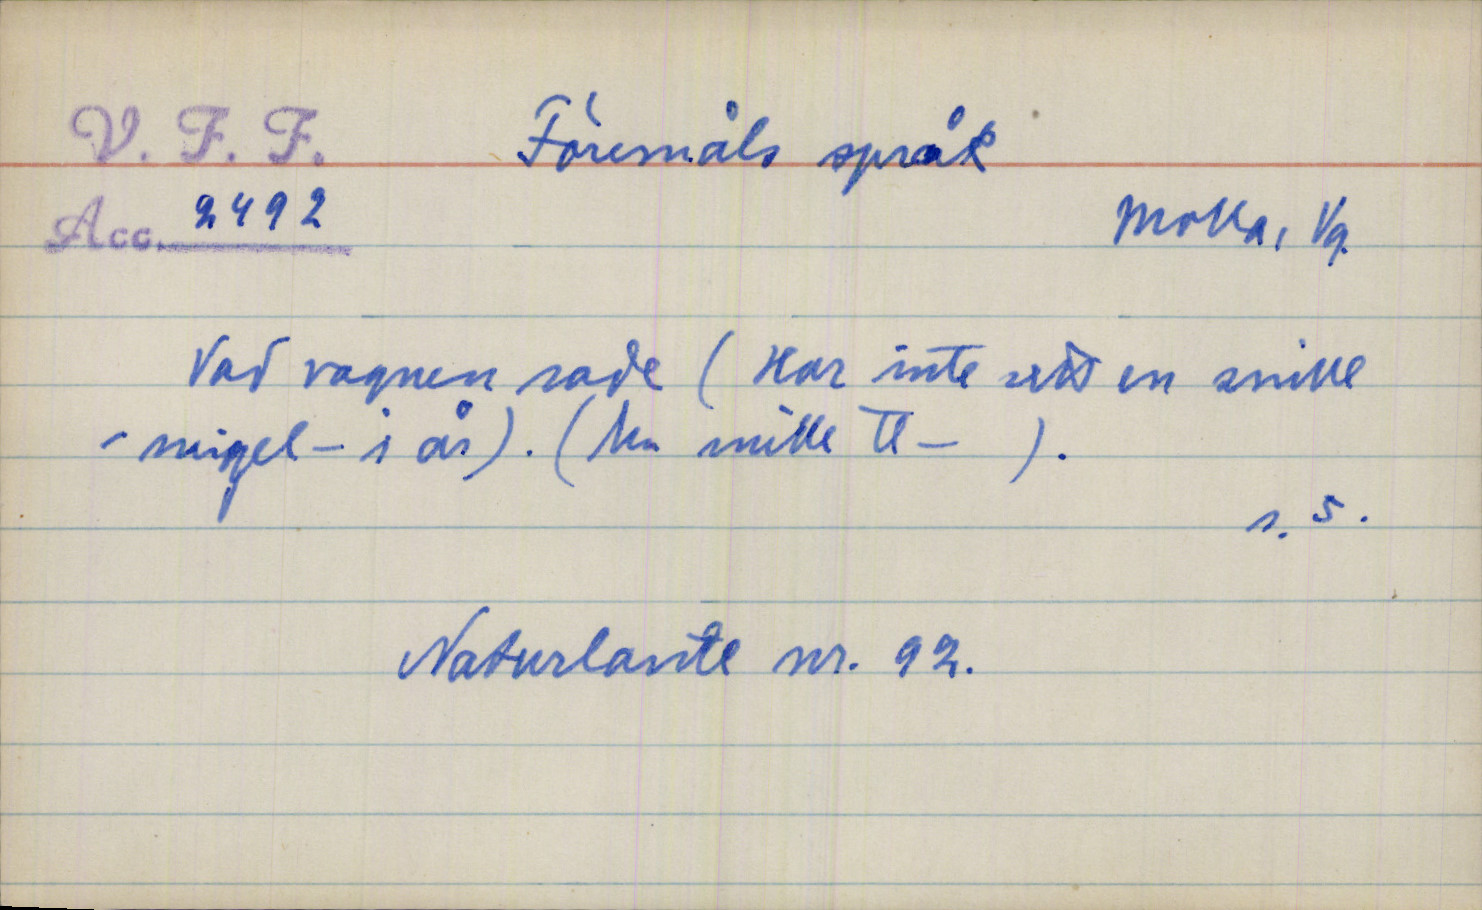 V. F. F.
Föremåls språk
Acc. 2492
Molla, Vg.
Vad vagnen sade (Har inte sett en snille
- snigel - i år). (
s. 5.
Naturlante nr. 92.